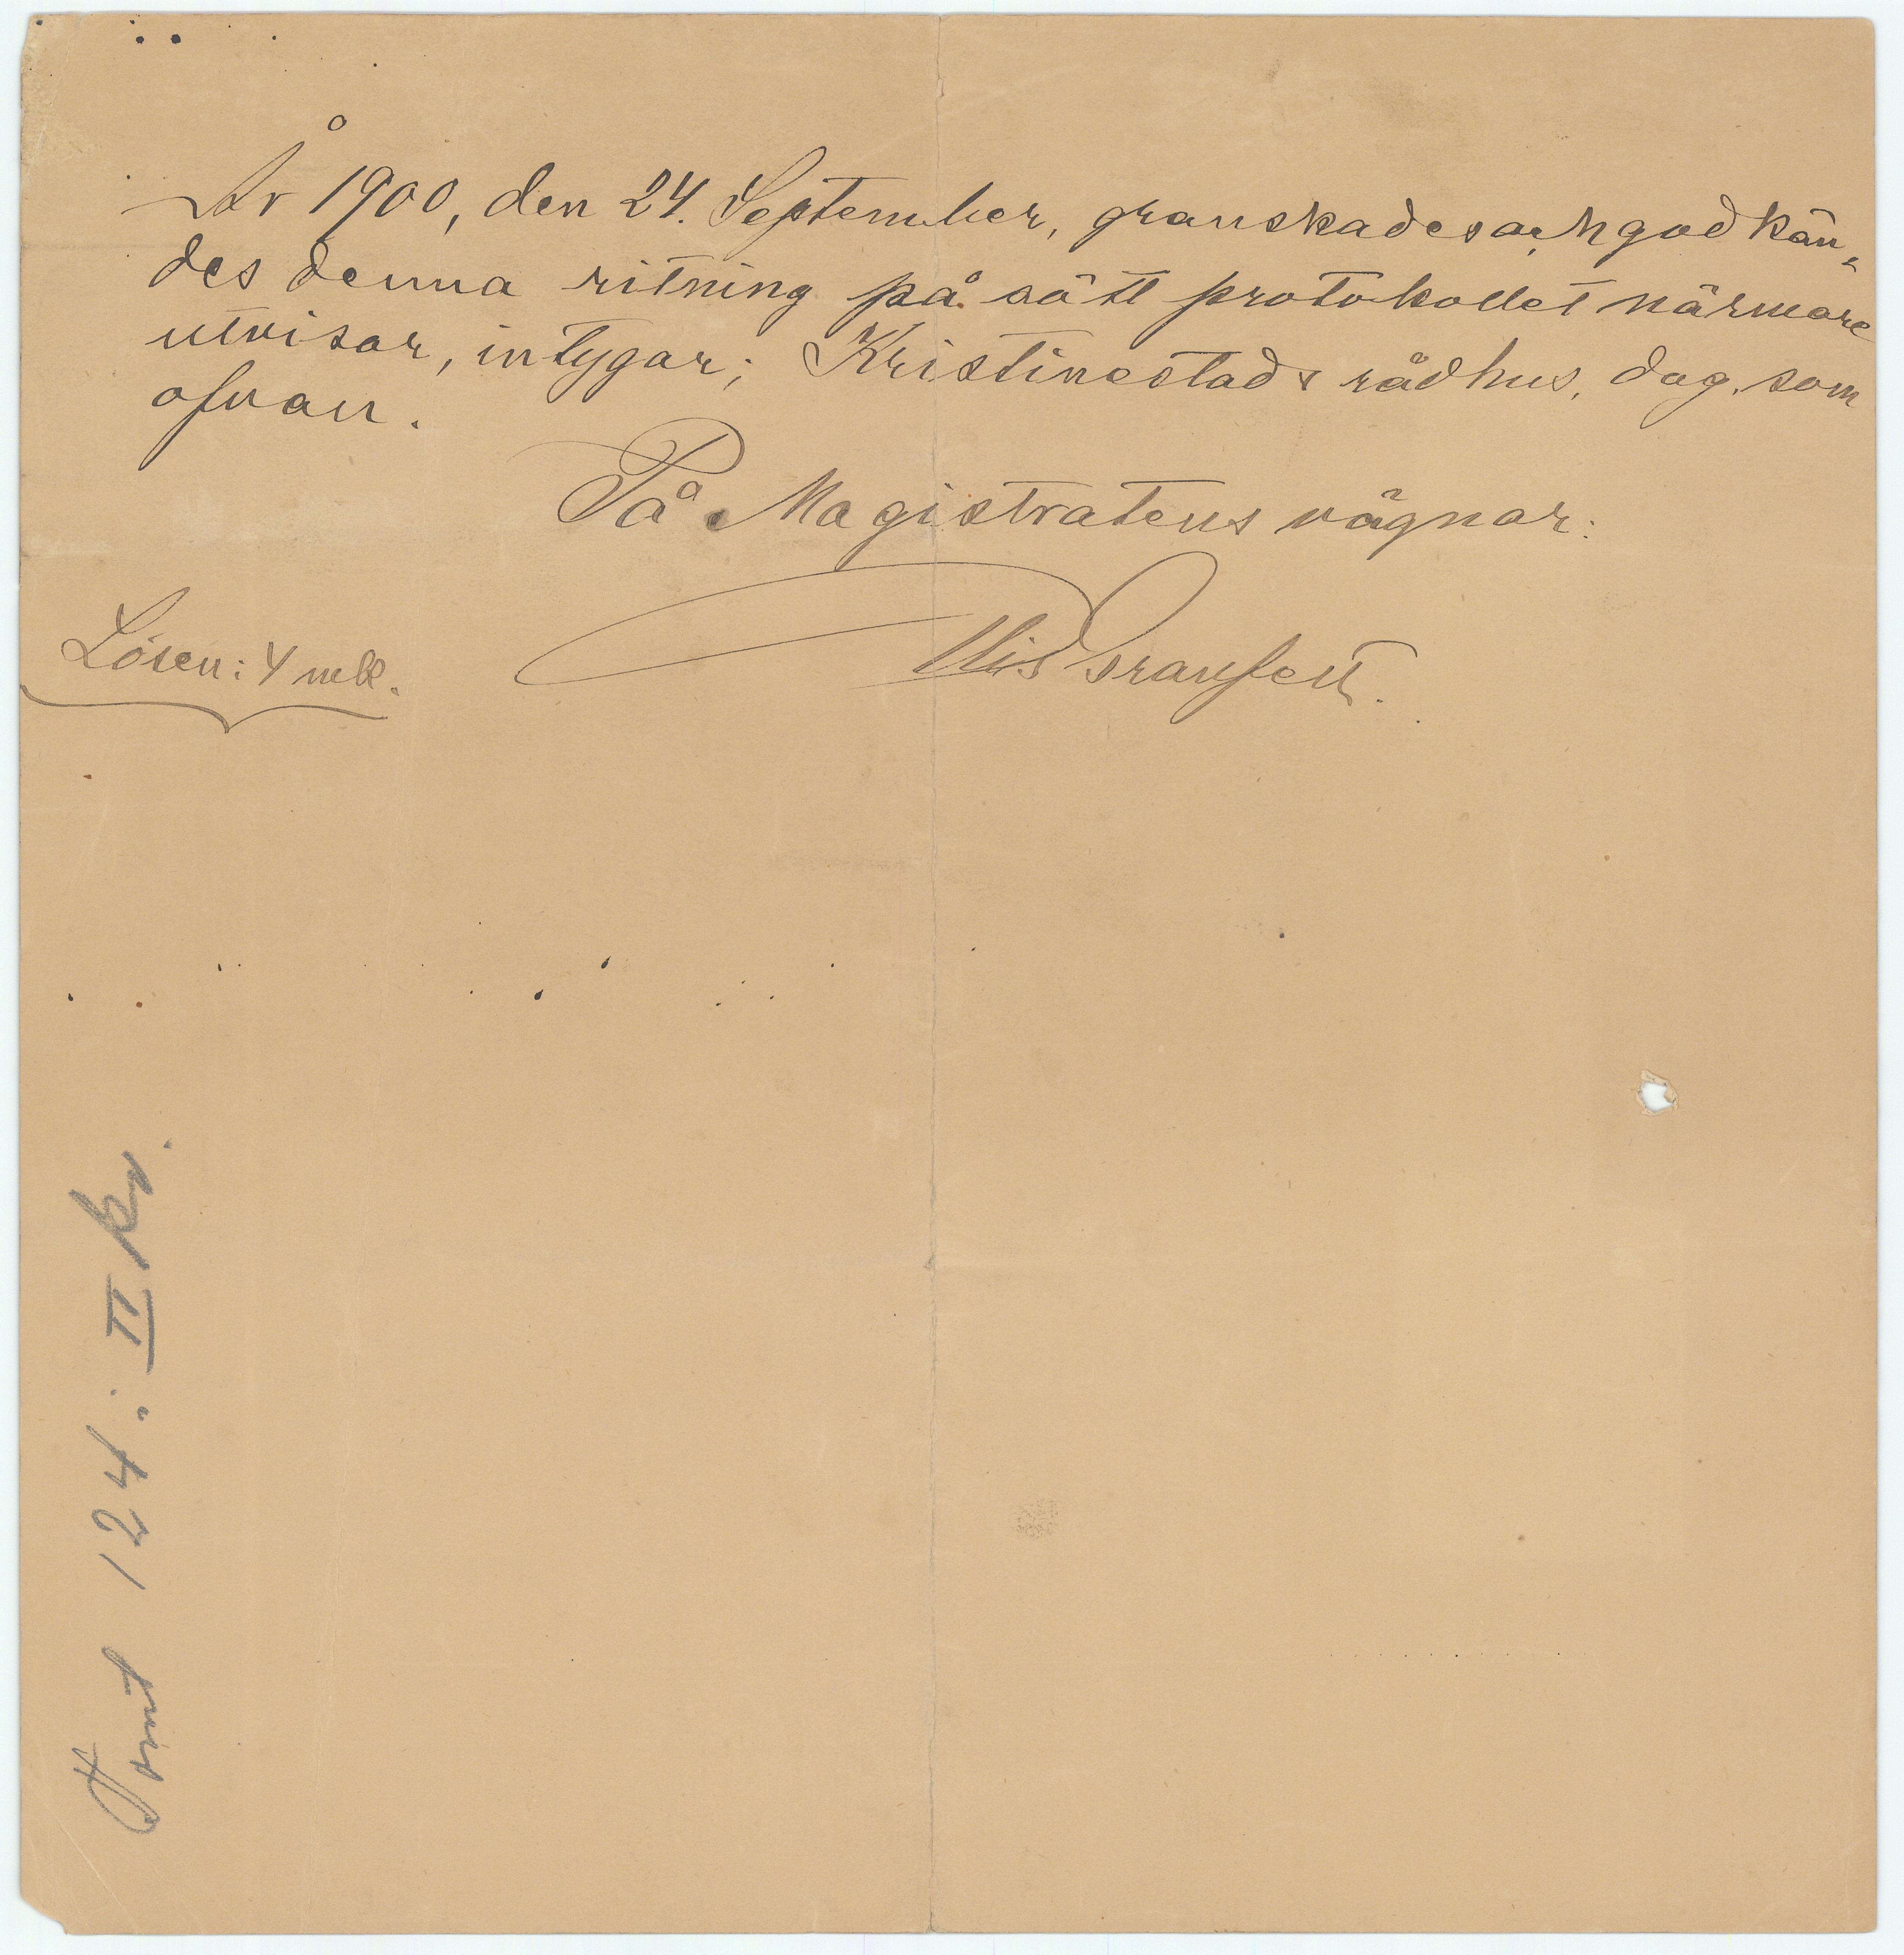 År 1900, den 24. September, granskades och godkän„
des denna ritning på sätt protokollet närmare
utvisar, intygar; Kristinestads rådhus, dag, som
ofvan.
På Magistratens vägnar:
Lösen: 4 mk.
Tomt 124. II kv.